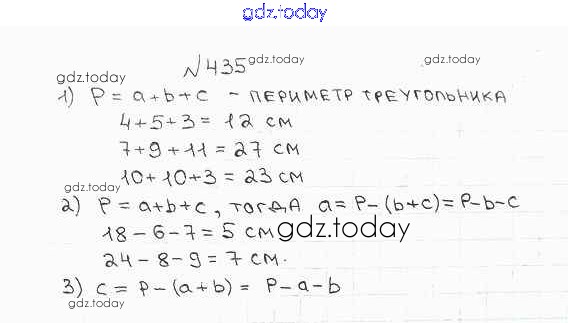 gdz.today
№435 gdz.today gdz.today
gdz.today
1) P = a+b+c - ПЕРИМЕТР ТРЕУГОЛЬНИКА
4+5+3 = 12 см
7+9+11 = 27 см
10+10+3 = 23 см
gdz.today
2) P = a+b+c, тогда a = P-(b+c) = P-b-c
18-6-7 = 5 см gdz.today
24-8-9 = 7 см.
3) c = P-(a+b) = P-a-b
gdz.today gdz.today